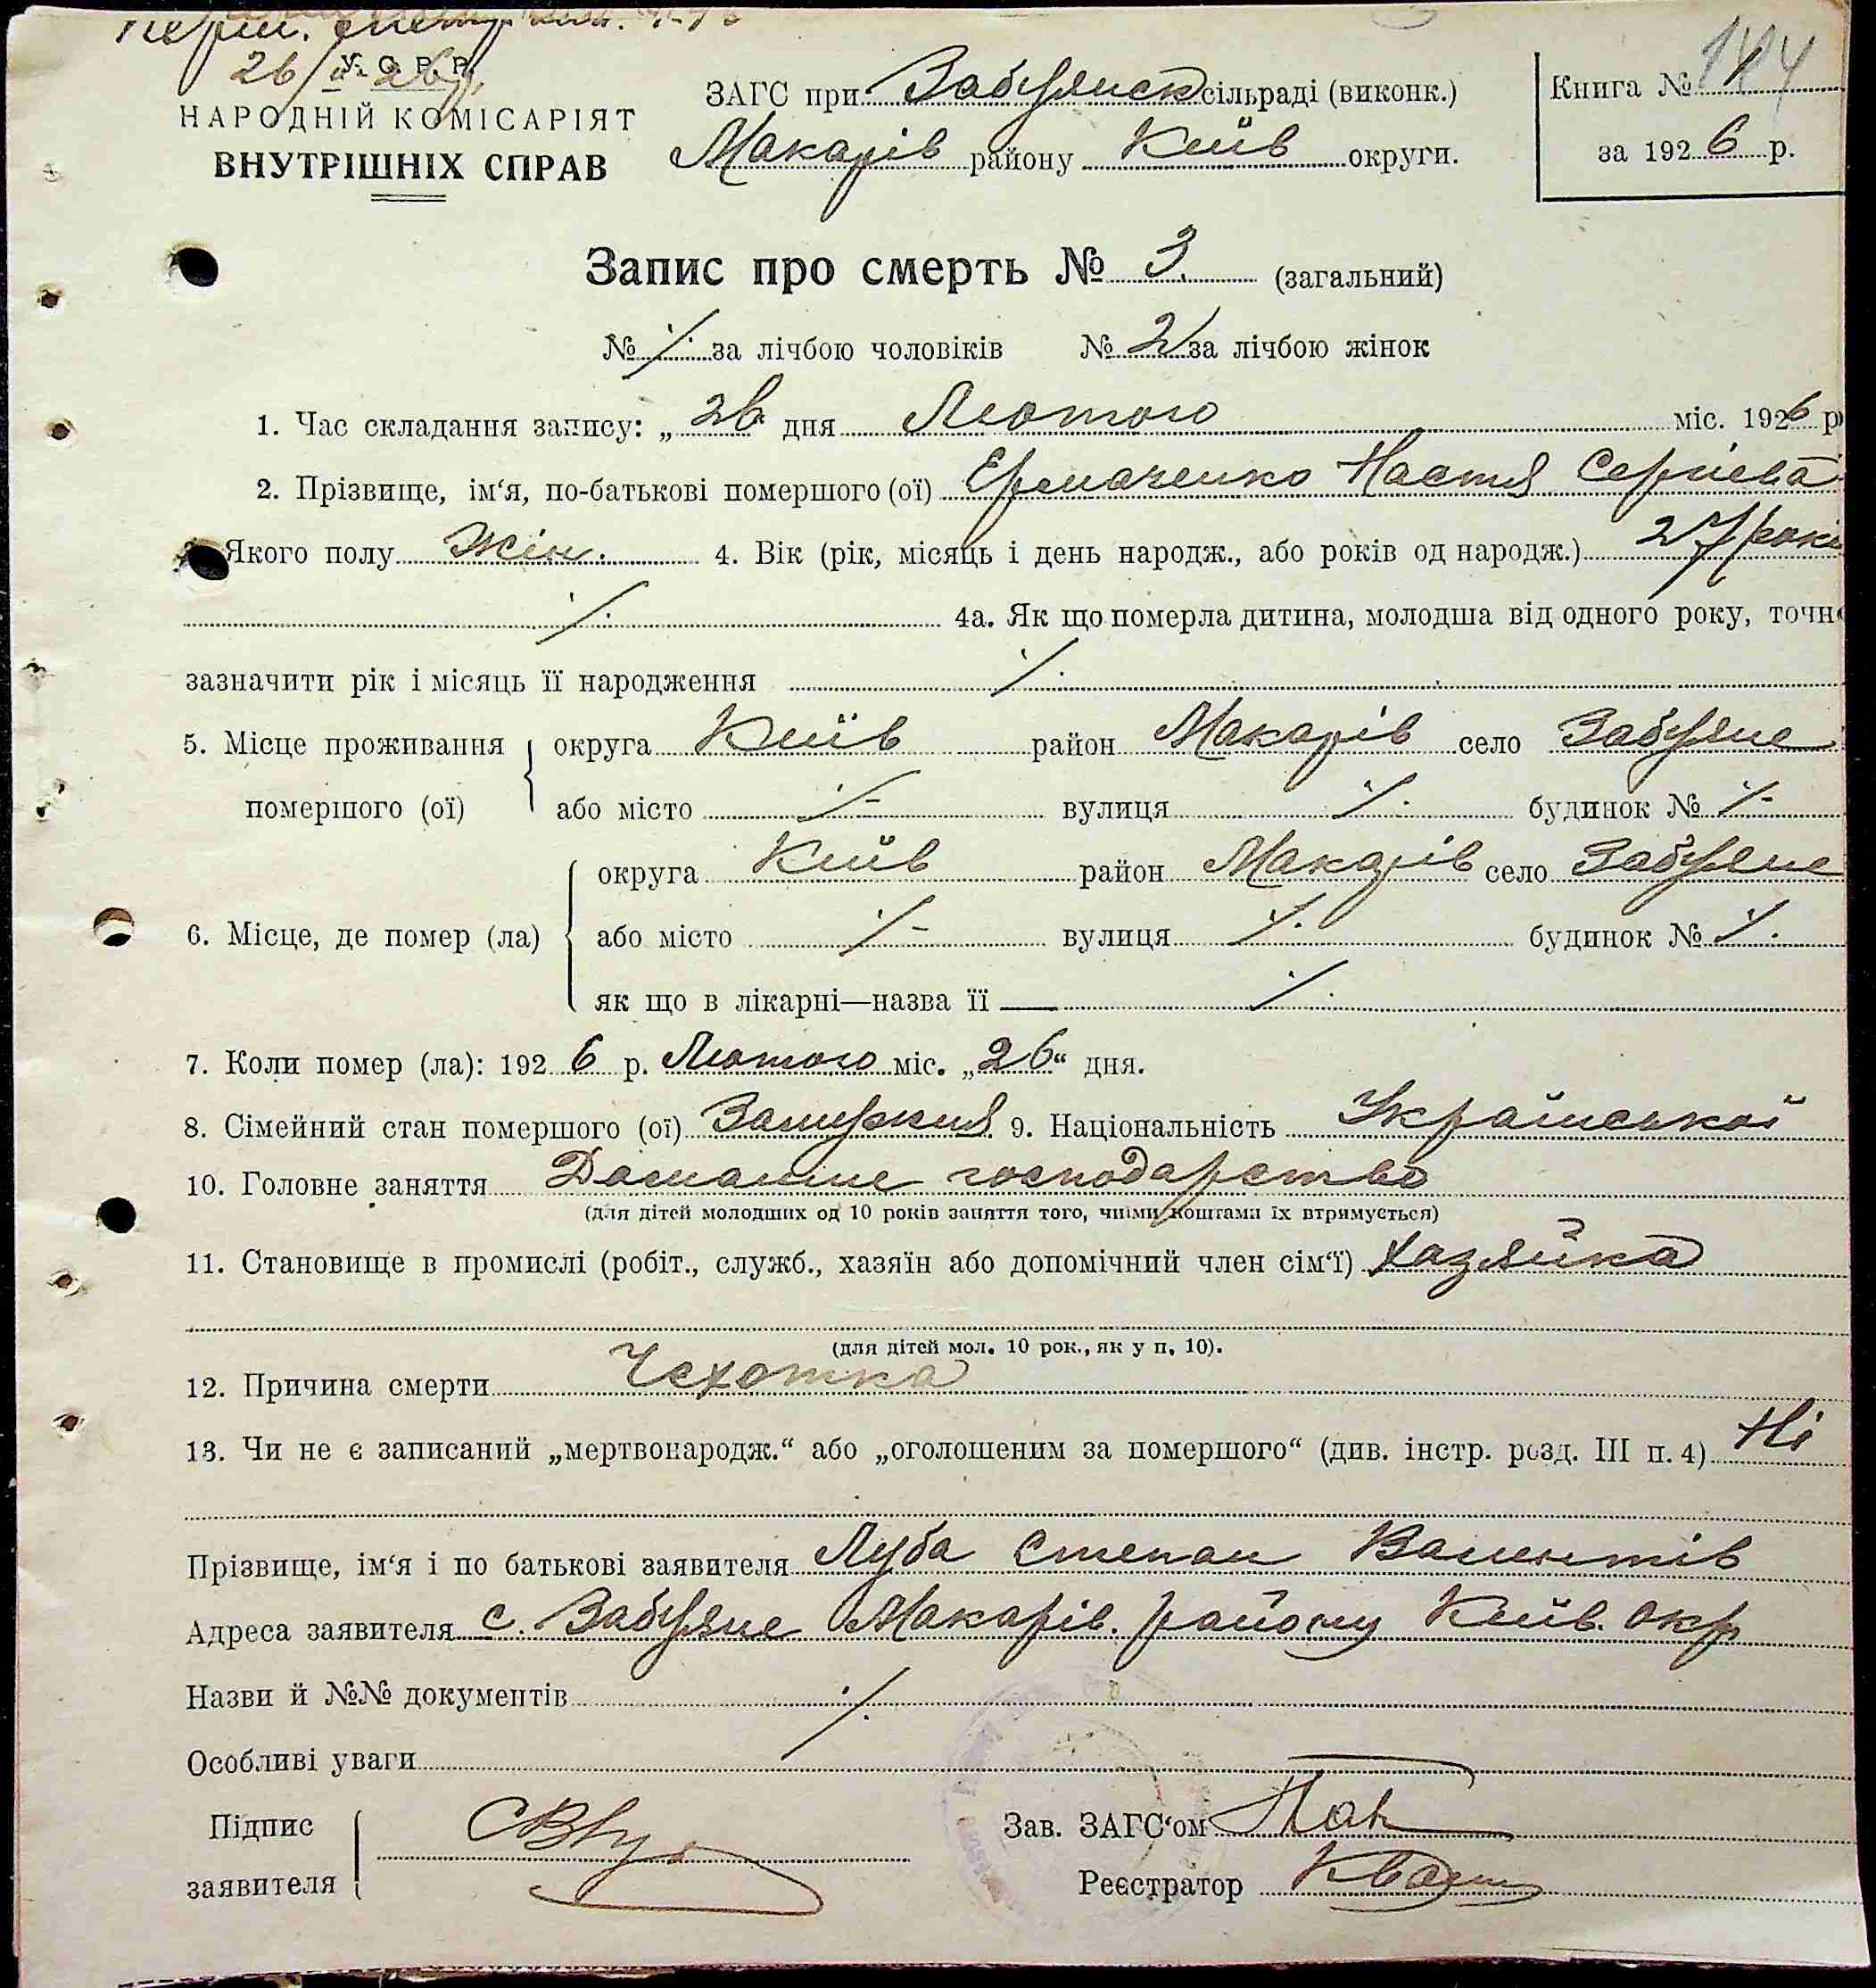 26/II 26 р.
У. С. Р. Р.
НАРОДНІЙ КОМІСАРІЯТ
ВНУТРІШНІХ СПРАВ
ЗАГС при Забуянск сільраді (виконк.)
Макарів району Київ округи.
Книга № 1
144
за 1926 р.
Запис про смерть № 3. (загальний)
№ ·/· за лічбою чоловіків № 2 за лічбою жінок
1. Час складання запису: „26" дня Лютого міс. 1926 р
2. Прізвище, ім‘я, по-батькові помершого (ої) Ермаченко Настя Сергіева
Якого полу Жін. 4. Вік (рік, місяць і день народж., або років од народж.) 27 рокі
·/· 4а. Як що померла дитина, молодша від одного року, точн
зазначити рік і місяць її народження ·/·
5. Місце проживання помершого (ої) округа Київ район Макарів село Забуяне
або місто ·/- вулиця ·/· будинок № ·/-
6. Місце, де помер (ла) округа Київ район Макарів село Забуяне
або місто ·/- вулиця ·/· будинок № ·/·
як що в лікарні—назва її ·/·
7. Коли помер (ла): 1926 р. Лютого міс. „26“ дня.
8. Сімейний стан помершого (ої) Замужня 9. Національність Української
10. Головне заняття Домашне господарство
(для дітей молодших од 10 років заняття того, чиїми коштами їх втримується)
11. Становище в промислі (робіт., служб., хазяїн або допомічний член сім‘ї) Хазяйка
(для дітей мол. 10 рок., як у п. 10).
12. Причина смерти Чехотка
13. Чи не є записаний „мертвонародж.“ або „оголошеним за помершого“ (див. інстр. розд. III п. 4) Ні
Прізвище, ім‘я і по батькові заявителя Луба Степан
Адреса заявителя с. Забуяне Макарів. району Київ. Окр
Назви й №№ документів ·/·
Особливі уваги
Підпис заявителя
Зав. ЗАГС‘ом
Реєстратор